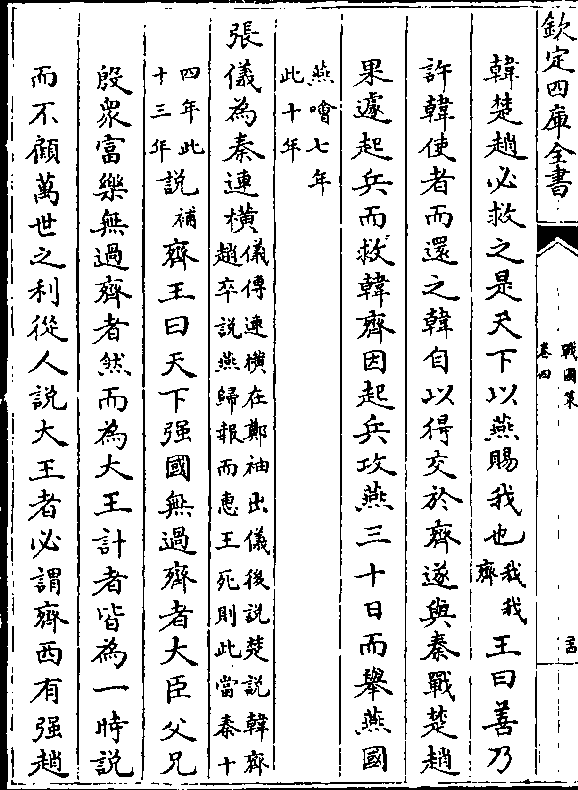 欽定四庫全書
戰國策
卷四
韓楚趙必救之是天下以燕賜我也我我齊王曰善乃
許韓使者而還之韓自以得交於齊遂與秦戰楚趙
果遽起兵而救韓齊因起兵攻燕三十日而舉燕國
燕噲七年此十年
張儀為秦連橫儀傳連橫在鄭袖出儀後説楚説韓齊趙卒説燕歸報而惠王死則此當秦十
四年此十三年説補齊王曰天下强國無過齊者大臣父兄
殷衆富樂無過齊者然而為大王計者皆為一時説
而不顧萬世之利從人説大王者必謂齊西有强趙